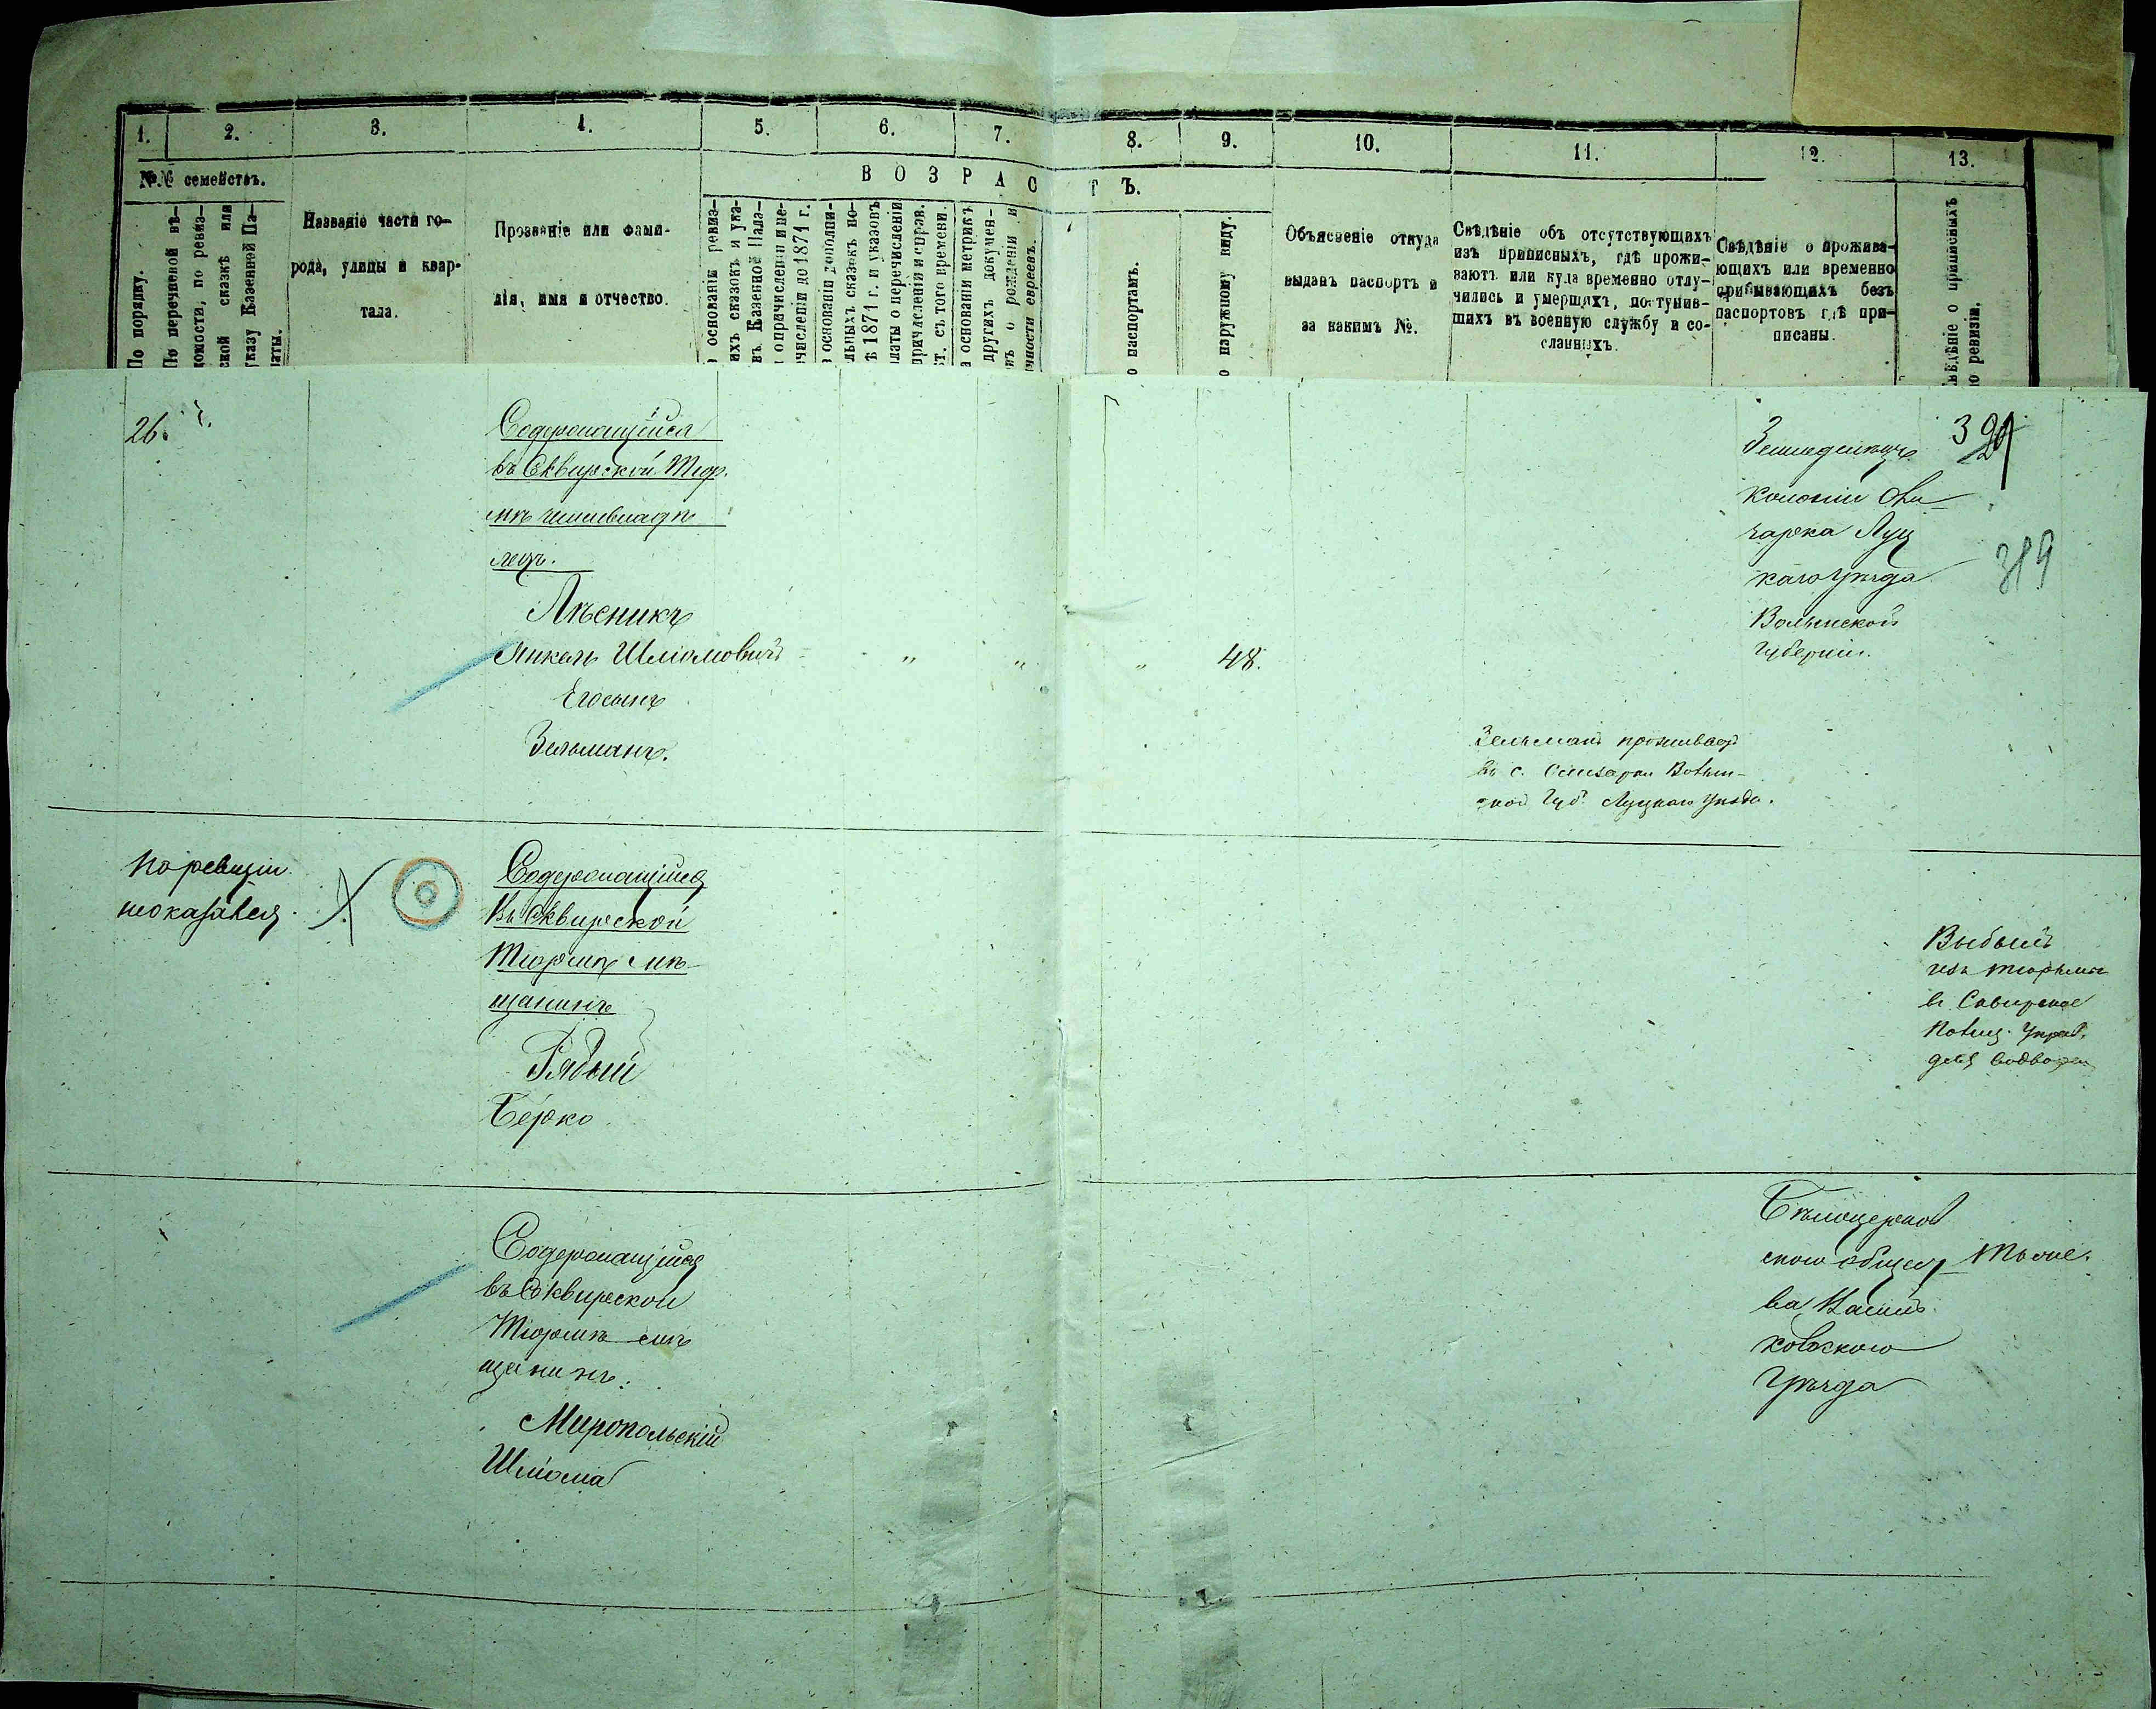 1.
2.
3.
4.
5.
6.
7.
8.
9.
10.
11.
12.
13.
№№ семействъ.
В О З Р А С Т Ъ.
По порядку.
По перечневой вѣ-
домости, по ревиз-
ской сказкѣ или
указу Казенной Па-
латы.
Названіе части го-
рода, улицы и квар-
тала.
Прозваніе или фами-
лія, имя и отчество.
основаніи ревиз-
ихъ сказокъ и ука-
въ Казенной Пала-
о причисленіи и пе-
числеліи до 1871 г.
основаніи дополни-
льныхъ сказокъ по-
ѣ 1871 г. и указовъ
латы о перечисленіи
причисленія и справ.
ст. съ того времени.
основаніи метрикъ
другихъ докумен-
въ о рожденіи и
чности евреевъ.
о паспортамъ.
о наружному виду.
Объясненіе откуда
выданъ паспортъ и
за какимъ №.
Свѣдѣніе объ отсутствующихъ
изъ приписныхъ, гдѣ прожи-
ваютъ или куда временно отлу-
чились и умершихъ, поступив-
шихъ въ военную службу и со-
сланныхъ.
Свѣдѣніе о прожива-
ющихъ или временно
пребывающихъ безъ
паспортовъ гдѣ при-
писаны.
ѣдѣніе о приписныхъ
о ревизіи.
26.
Содержащійся
въ Сквирской Тюр.
мѣ землевладѣ
лецъ.
Лѣсникъ
Янкель Шліомовичъ
Его сынъ
Зельманъ.
48.
Земледѣлецъ
колоніи
Луц
каго Уѣзда
Волынской
Губерніи.
319
Зельманъ проживаетъ
въ с. Волын-
ской Губ. Луцкаго Уѣзда.
По ревизіи
показался.
Содержащійся
Въ Сквирской
Тюрмѣ мѣ-
щанинъ
Рябый
Берко
Выбылъ
изъ тюрьмы
въ Сквирское
Полиц. Управ.
для водворен
Содержащійся
въ Сквирской
Тюрмѣ мѣ
щанинъ:
Миропольскій
Шліома
Бѣлоцерков
скаго общест
ва Васил
ковского
Уѣзда
Тоже.